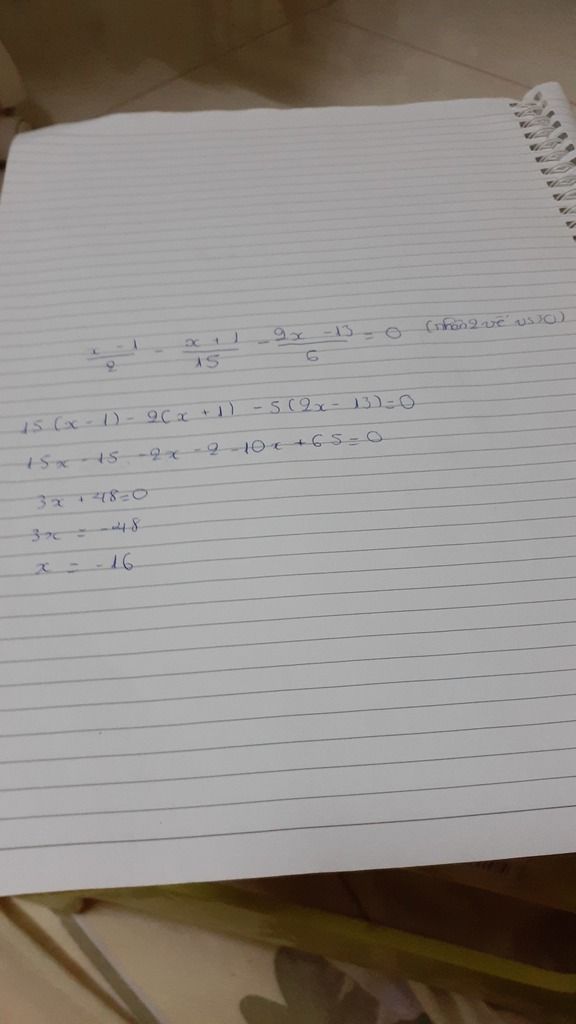 x - 1 / 2 - x + 1 / 15 - 2x - 13 / 6 = 0 (nhân 2 vế vs 30)
15(x - 1) - 2(x + 1) - 5(2x - 13) = 0
15x - 15 - 2x - 2 - 10x + 65 = 0
3x + 48 = 0
3x = -48
x = -16